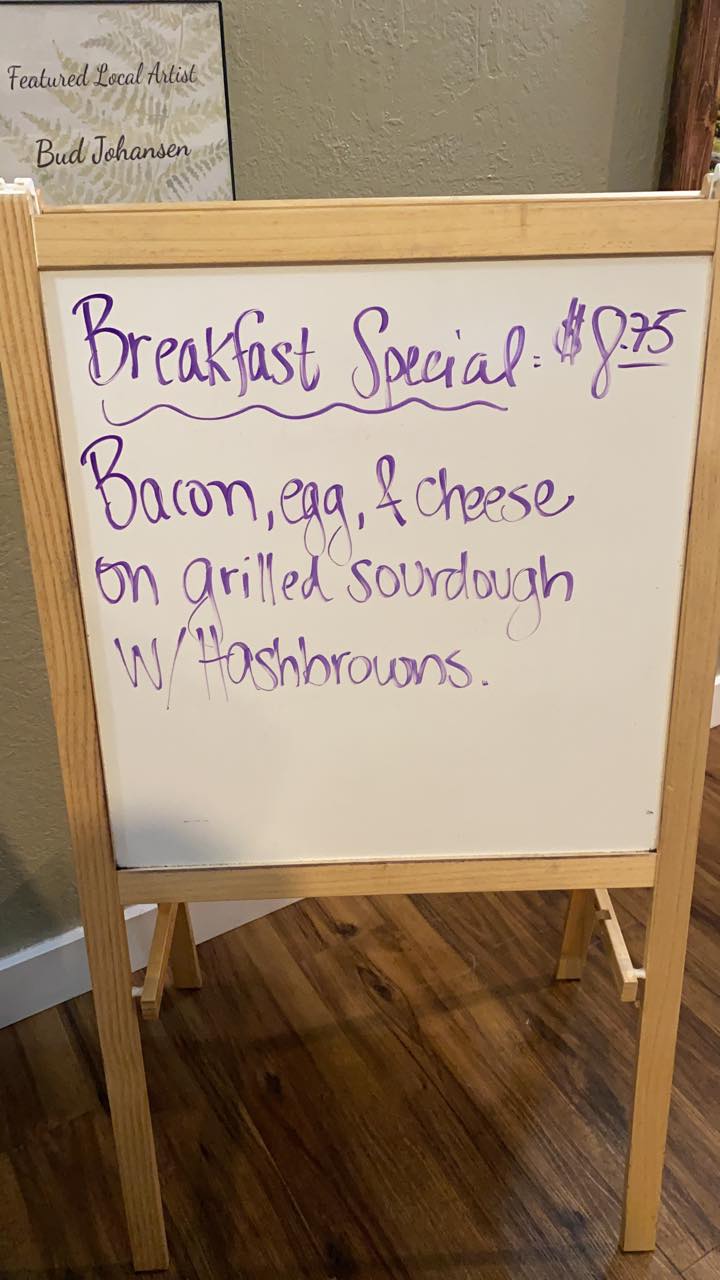 Featured Local Artist
Bud Johansen
Breakfast Special: $8.75
Bacon, egg, & cheese
on grilled sourdough
W/Hashbrowns.